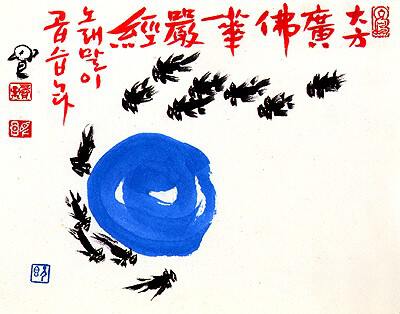 大方廣佛華嚴經
노래말이
곱습니다